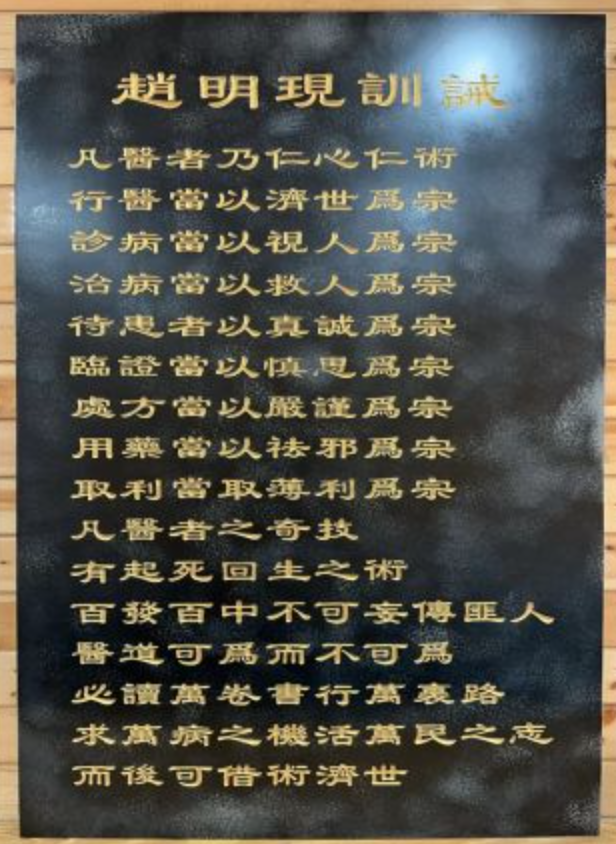 趙明現訓誡
凡醫者乃仁心仁術
行醫當以濟世爲宗
診病當以視人爲宗
治病當以救人爲宗
待患者以真誠爲宗
臨證當以慎思爲宗
處方當以嚴謹爲宗
用藥當以祛邪爲宗
取利當取薄利爲宗
凡醫者之奇技
有起死回生之術
百發百中不可妄傳匪人
醫道可爲而不可爲
必讀萬卷書行萬裏路
求萬病之機活萬民之志
而後可借術濟世